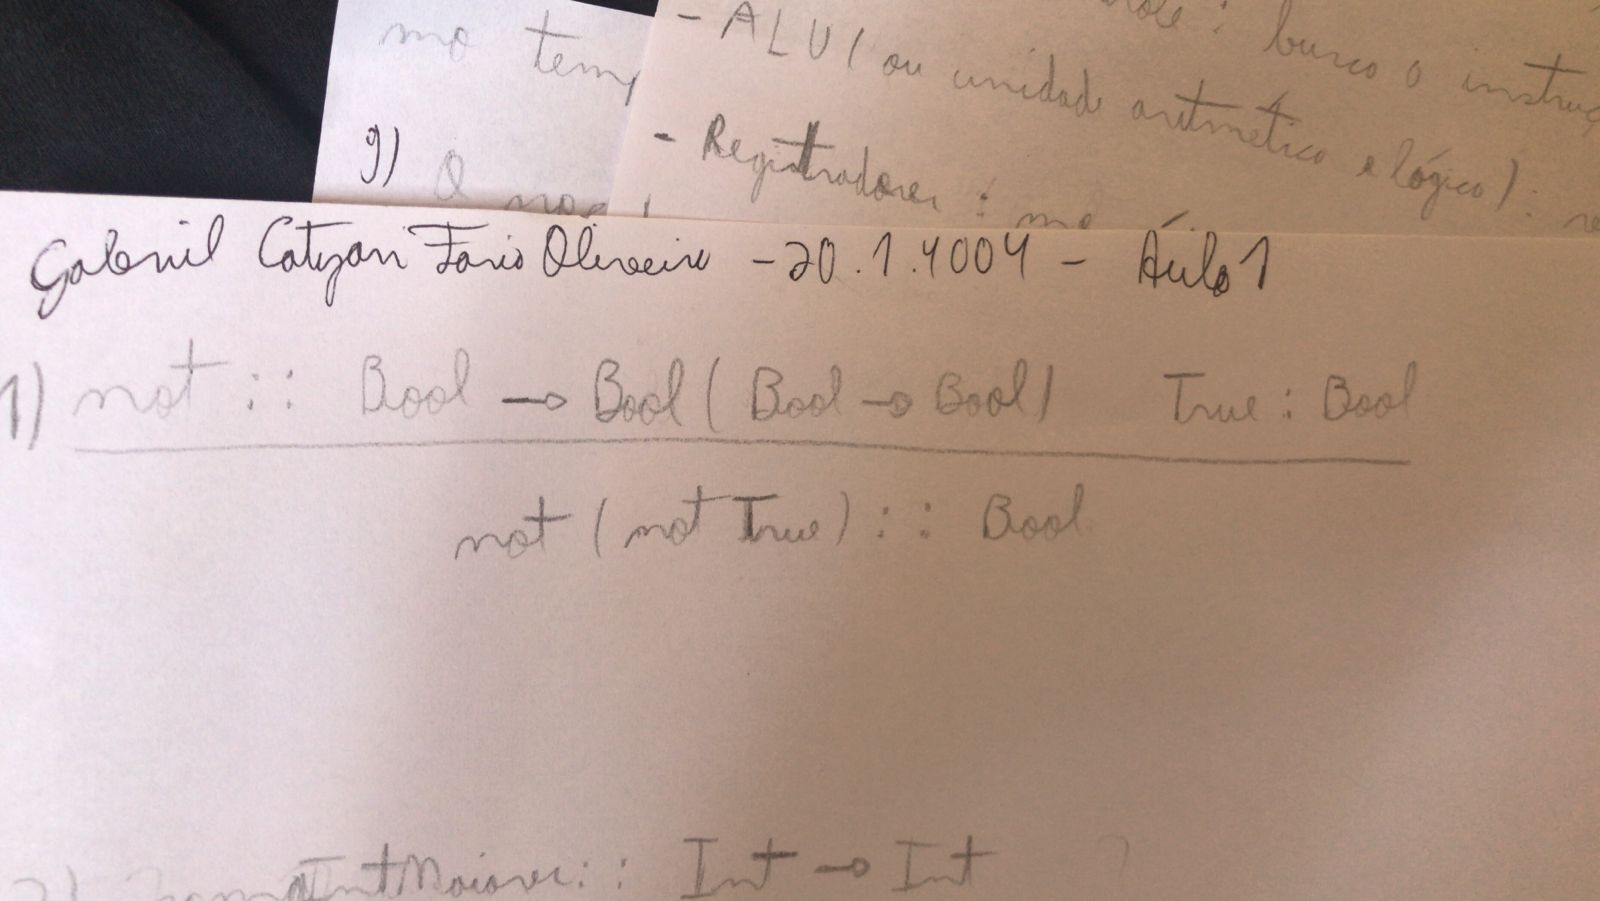 no temp
9) O
role : busca o instruç
- ALU (ou unidade aritmética e lógica) :
- Registradores : me
Gabriel Catyan Faria Oliveira - 20.1.4004 - Aula 1
1) not :: Bool → Bool ( Bool → Bool ) True : Bool
not ( not True ) : : Bool
IntMaiores : : Int → Int